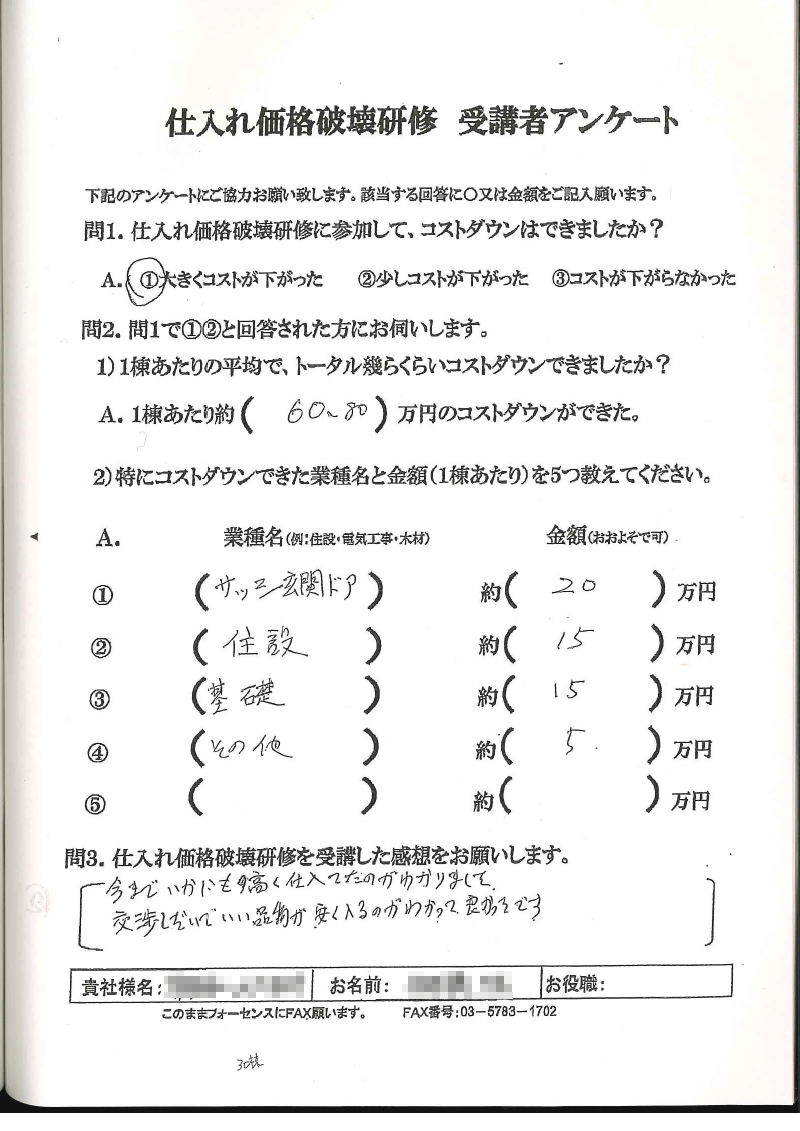 仕入れ価格破壊研修 受講者アンケート
下記のアンケートにご協力お願い致します。該当する回答に〇又は金額をご記入願います。
問1. 仕入れ価格破壊研修に参加して、コストダウンはできましたか？
A. ①大きくコストが下がった ②少しコストが下がった ③コストが下がらなかった
問2. 問1で①②と回答された方にお伺いします。
1) 1棟あたりの平均で、トータル幾らくらいコストダウンできましたか？
A. 1棟あたり約( 60~80 ) 万円のコストダウンができた。
2) 特にコストダウンできた業種名と金額(1棟あたり)を5つ教えてください。
A. 業種名(例:住設・電気工事・木材) 金額(おおよそで可)
① (サッシ玄関ドア) 約( 20 ) 万円
② ( 住設 ) 約( 15 ) 万円
③ (基礎 ) 約( 15 ) 万円
④ (その他 ) 約( 5. ) 万円
⑤ ( ) 約( ) 万円
問3. 仕入れ価格破壊研修を受講した感想をお願いします。
今まで いかにも 高く仕入てたのがわかりまして
交渉しだいでいい品物が 安く入るのがわかって 良かったです
貴社様名: お名前: お役職:
このままフォーセンスにFAX願います。 FAX番号:03-5783-1702
30棟